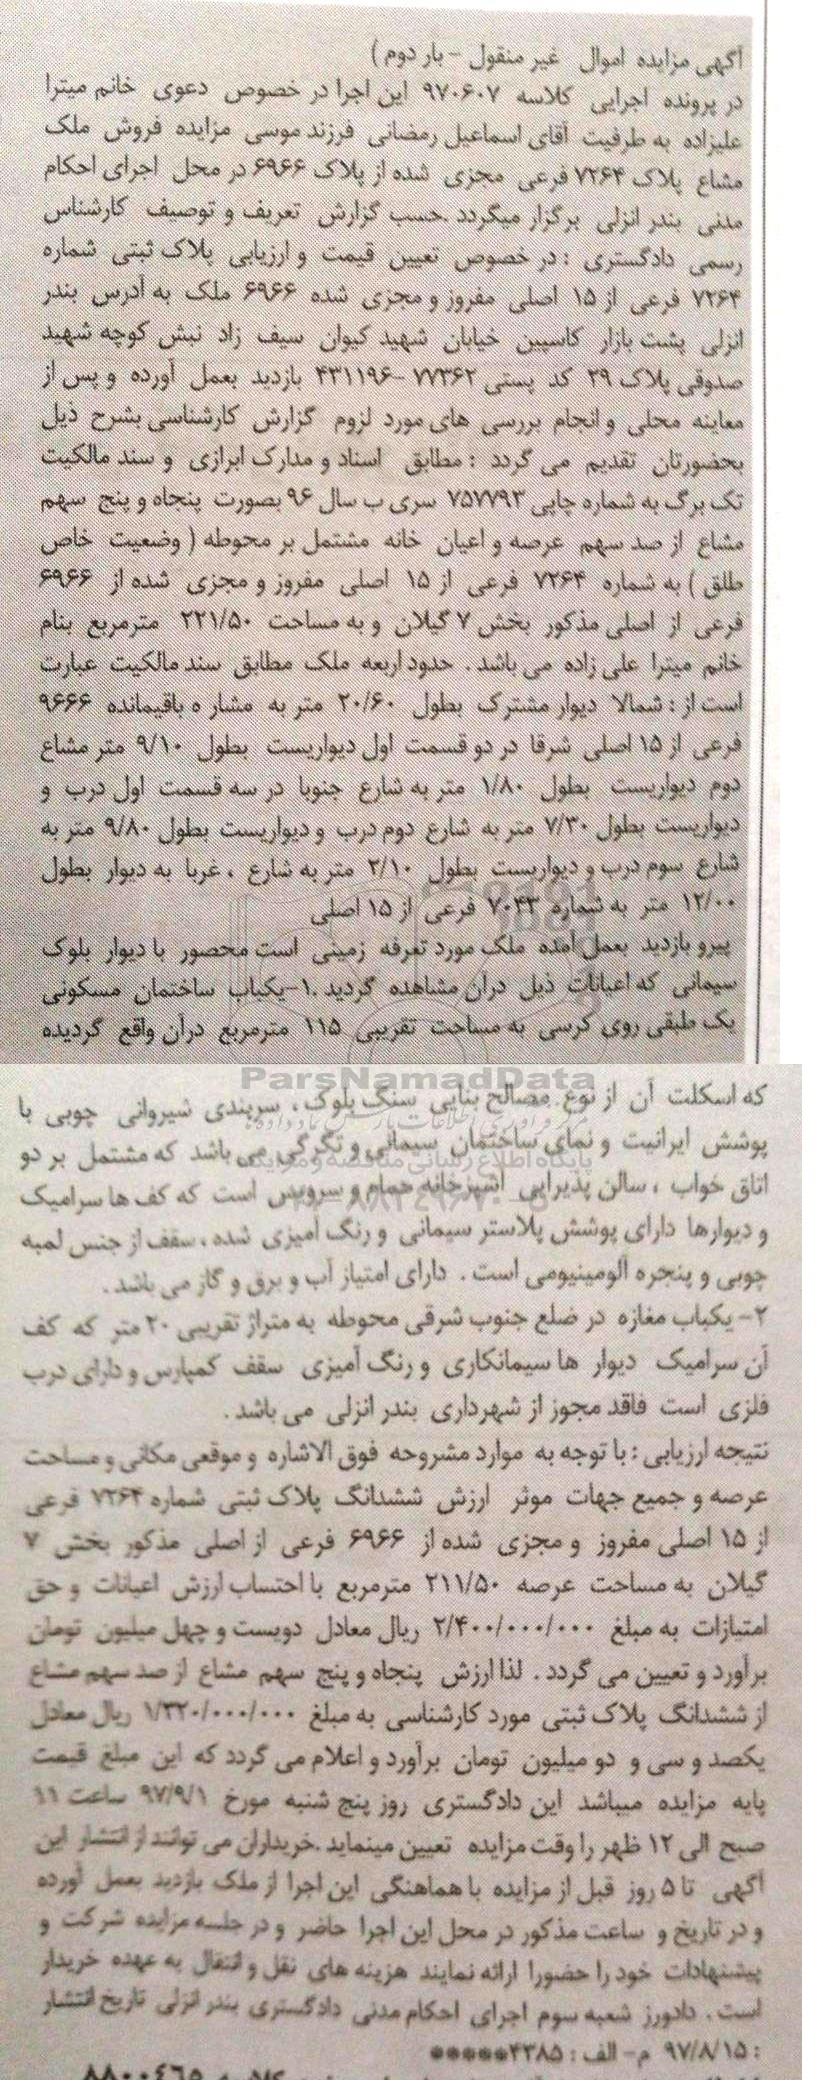 آگهی مزایده اموال غیر منقول - بار دوم )
در پرونده اجرایی کلاسه ۹۷۰۶۰۷ این اجرا در خصوص دعوی خانم میترا
علیزاده به طرفیت آقای اسماعیل رمضانی فرزند موسی مزایده فروش ملک
مشاع پلاک ۷۲۶۴ فرعی مجزی شده از پلاک ۶۹۶۶ در محل اجرای احکام
مدنی بندر انزلی برگزار میگردد .حسب گزارش تعریف و توصیف کارشناس
رسمی دادگستری : در خصوص تعیین قیمت و ارزیابی پلاک ثبتی شماره
۷۲۶۴ فرعی از ۱۵ اصلی مفروز و مجزی شده ۶۹۶۶ ملک به آدرس بندر
انزلی پشت بازار کاسپین خیابان شهید کیوان سیف زاد نبش کوچه شهید
صدوقی پلاک ۲۹ کد پستی ۷۷۳۶۲-۴۳۱۱۹۶ بازدید بعمل آورده و پس از
معاینه محلی و انجام بررسی های مورد لزوم گزارش کارشناسی بشرح ذیل
بحضورتان تقدیم می گردد : مطابق اسناد و مدارک ابرازی و سند مالکیت
تک برگ به شماره چاپی ۷۵۷۷۹۳ سری ب سال ۹۶ بصورت پنجاه و پنج سهم
مشاع از صد سهم عرصه و اعیان خانه مشتمل بر محوطه ( وضعیت خاص
طلق ) به شماره ۷۲۶۴ فرعی از ۱۵ اصلی مفروز و مجزی شده از ۶۹۶۶
فرعی از اصلی مذکور بخش ۷ گیلان و به مساحت ۲۲۱/۵۰ مترمربع بنام
خانم میترا علی زاده می باشد . حدود اربعه ملک مطابق سند مالکیت عبارت
است از : شمالا دیوار مشترک بطول ۲۰/۶۰ متر به مشار ه باقیمانده ۹۶۶۶
فرعی از ۱۵ اصلی شرقا در دو قسمت اول دیواریست بطول ۹/۱۰ متر مشاع
دوم دیواریست بطول ۱/۸۰ متر به شارع جنوبا در سه قسمت اول درب و
دیواریست بطول ۷/۳۰ متر به شارع دوم درب و دیواریست بطول ۹/۸۰ متر به
شارع سوم درب و دیواریست بطول ۲/۱۰ متر به شارع ، غربا به دیوار بطول
۱۲/۰۰ متر به شماره ۷۰۴۳ فرعی از ۱۵ اصلی
پیرو بازدید بعمل آمده ملک مورد تعرفه زمینی است محصور با دیوار بلوک
سیمانی که اعیانات ذیل درآن مشاهده گردید .۱-یکباب ساختمان مسکونی
یک طبقی روی کرسی به مساحت تقریبی ۱۱۵ مترمربع درآن واقع گردیده
ParsNamadData
که اسکلت آن از نوع مصالح بنایی سنگ بلوک ، سربندی شیروانی چوبی با
پوشش ایرانیت و نمای ساختمان سیمانی و تگرگی می باشد که مشتمل بر دو
پایگاه اطلاع رسانی مناقصه و مزایده
اتاق خواب ، سالن پذیرایی آشپزخانه حمام و سرویس است که کف ها سرامیک
و دیوارها دارای پوشش پلاستر سیمانی و رنگ آمیزی شده ، سقف از جنس لمبه
چوبی و پنجره آلومینیومی است . دارای امتیاز آب و برق و گاز می باشد .
۲- یکباب مغازه در ضلع جنوب شرقی محوطه به متراژ تقریبی ۲۰ متر که کف
آن سرامیک دیوار ها سیمانکاری و رنگ آمیزی سقف کمپارس و دارای درب
فلزی است فاقد مجوز از شهرداری بندر انزلی می باشد .
نتیجه ارزیابی : با توجه به موارد مشروحه فوق الاشاره و موقعی مکانی و مساحت
عرصه و جمیع جهات موثر ارزش ششدانگ پلاک ثبتی شماره ۷۲۶۴ فرعی
از ۱۵ اصلی مفروز و مجزی شده از ۶۹۶۶ فرعی از اصلی مذکور بخش ۷
گیلان به مساحت عرصه ۲۱۱/۵۰ مترمربع با احتساب ارزش اعیانات و حق
امتیازات به مبلغ ۲/۴۰۰/۰۰۰/۰۰۰ ریال معادل دویست و چهل میلیون تومان
برآورد و تعیین می گردد . لذا ارزش پنجاه و پنج سهم مشاع از صد سهم مشاع
از ششدانگ پلاک ثبتی مورد کارشناسی به مبلغ ۱/۳۲۰/۰۰۰/۰۰۰ ریال معادل
یکصد و سی و دو میلیون تومان برآورد و اعلام می گردد که این مبلغ قیمت
پایه مزایده میباشد این دادگستری روز پنج شنبه مورخ ۹۷/۹/۱ ساعت ۱۱
صبح الی ۱۲ ظهر را وقت مزایده تعیین مینماید .خریداران می توانند از انتشار این
آگهی تا ۵ روز قبل از مزایده با هماهنگی این اجرا از ملک بازدید بعمل آورده
و در تاریخ و ساعت مذکور در محل این اجرا حاضر و در جلسه مزایده شرکت و
پیشنهادات خود را حضورا ارائه نمایند هزینه های نقل و انتقال به عهده خریدار
است . دادورز شعبه سوم اجرای احکام مدنی دادگستری بندر انزلی تاریخ انتشار
: ۹۷/۸/۱۵ م- الف : ۴۳۸۵*****